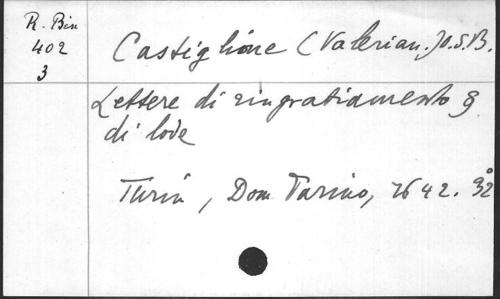 R. Bin
402
3
Castiglione (Valerian.) O.S.B.
Lettere di ringratiamento &
di lode
Turin, Dom. Tarino, 1642. 8°